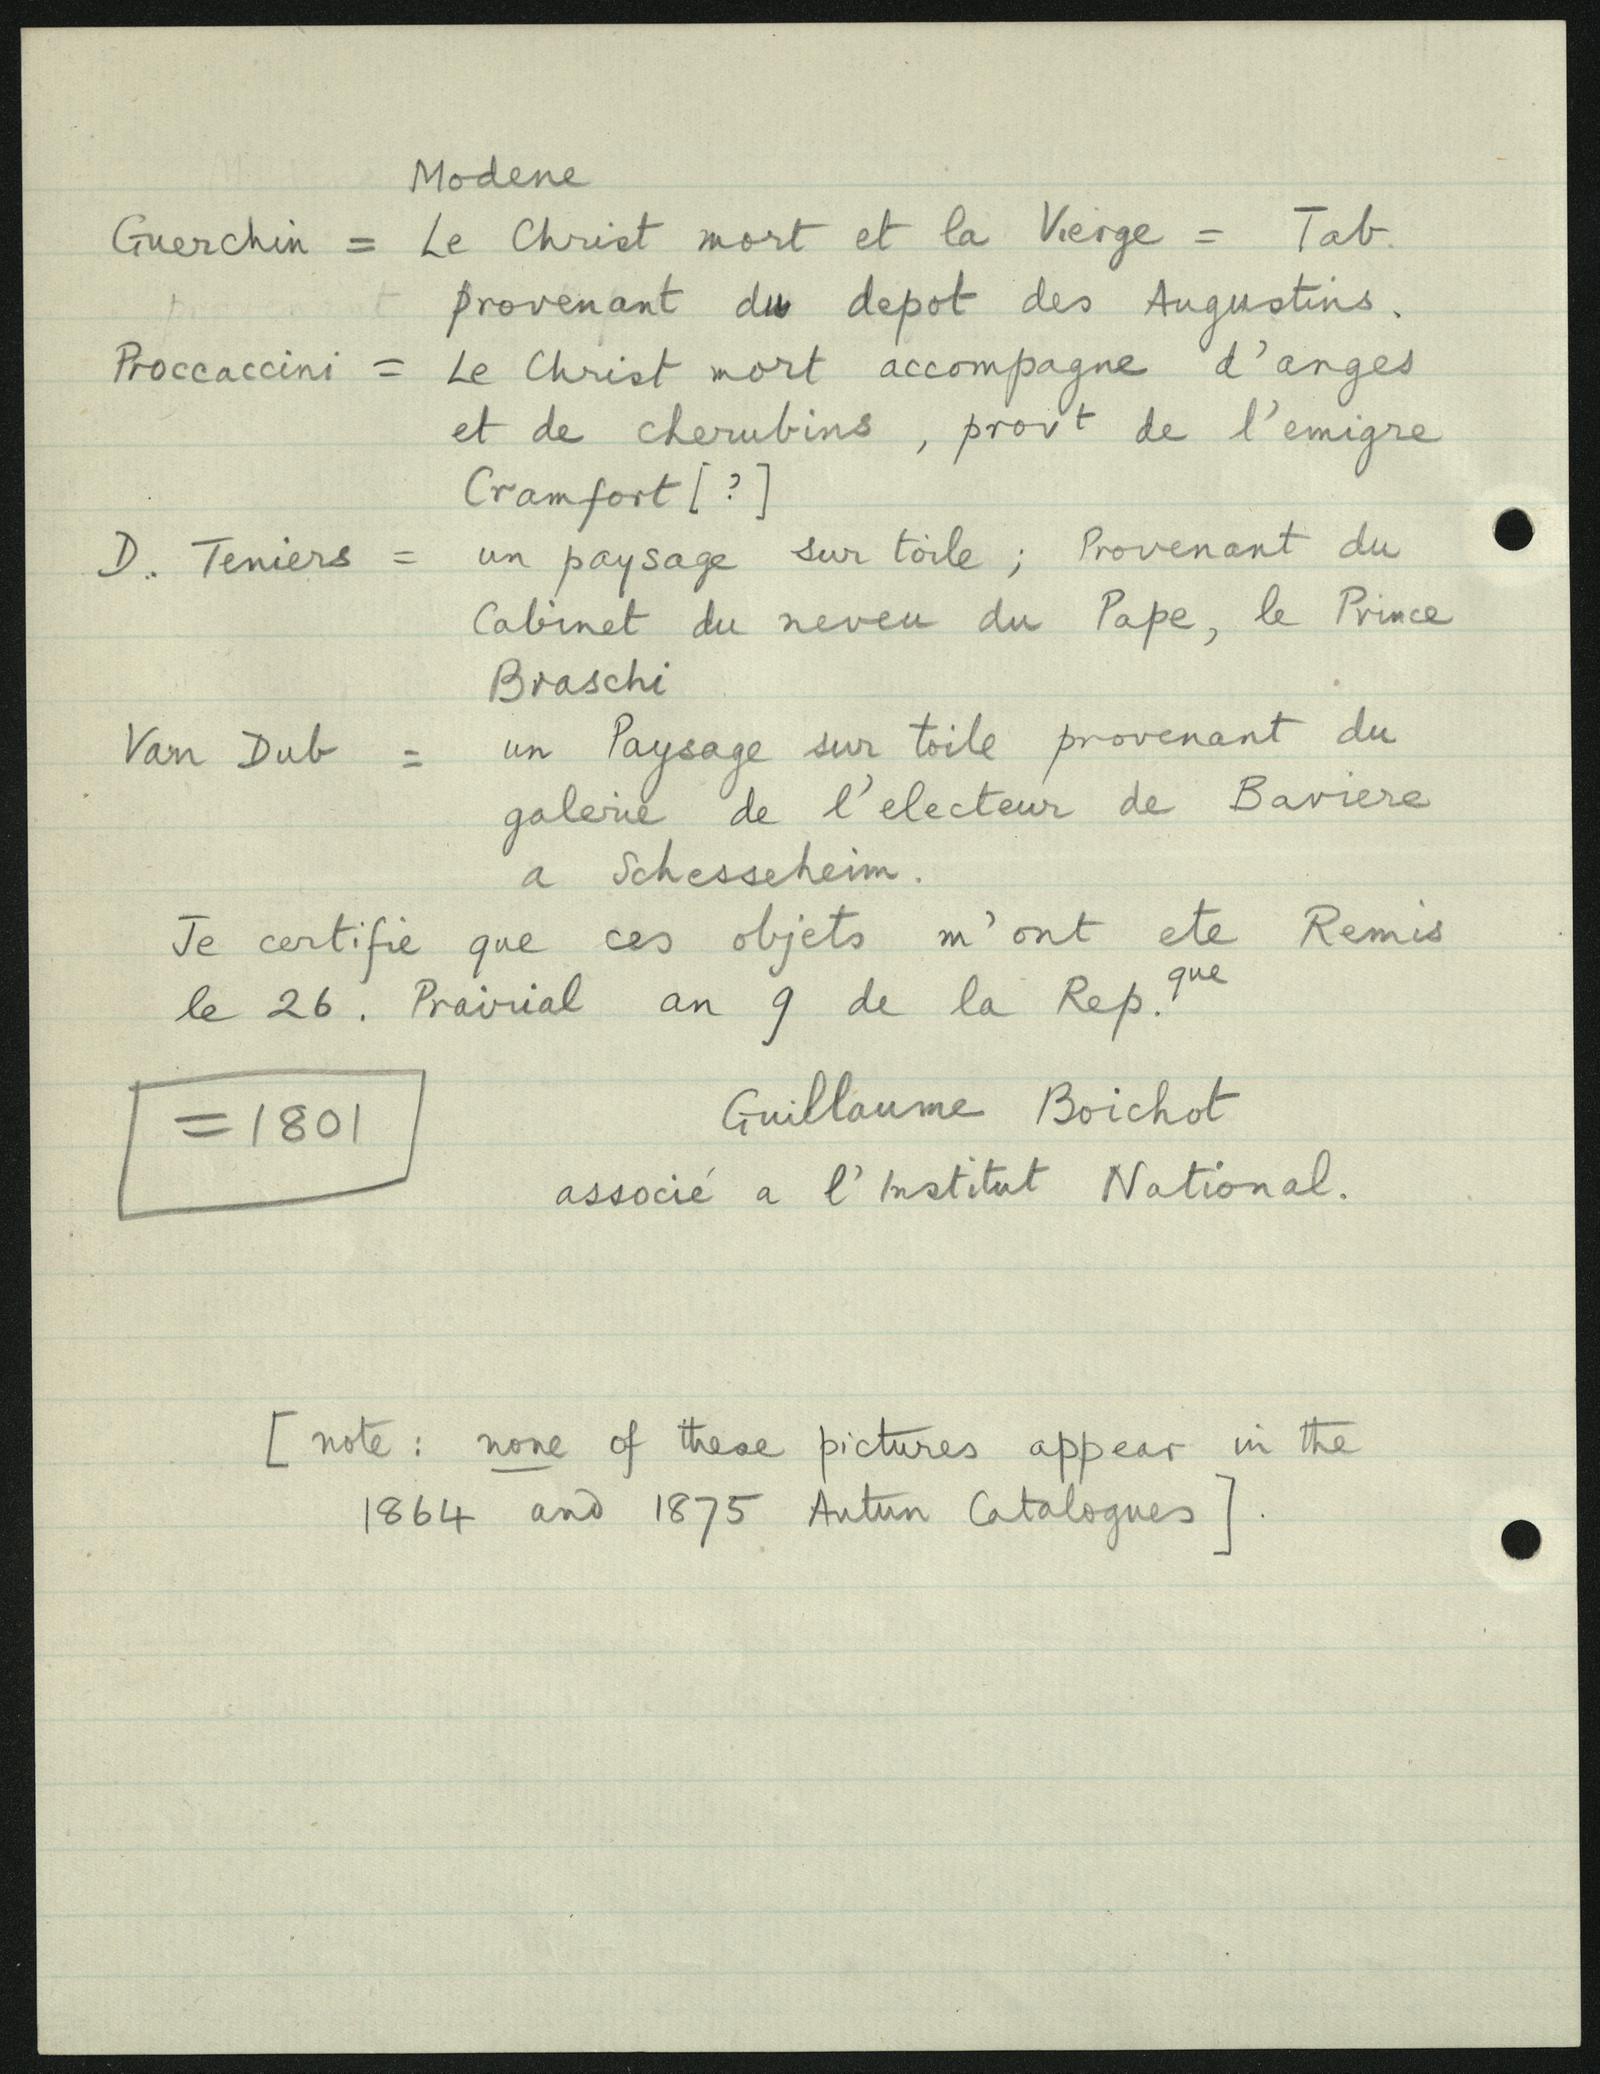 Modene
Guerchin = Le Christ mort et la Vierge = Tab.
provenant du depot des Augustins.
Proccaccini = Le Christ mort accompagne d'anges
et de cherubins, provt de l'emigre
Cramfort [?]
D. Teniers = un paysage sur toile ; Provenant du
Cabinet du neveu du Pape, le Prince
Braschi
Van Dub = un Paysage sur toile provenant du
galerie de l'electeur de Baviere
a Schesseheim.
Je certifie que ces objets m'ont ete Remis
le 26. Prairial an 9 de la Rep.que
= 1801
Guillaume Boichot
associé a l'Institut National.
[note : none of these pictures appear in the
1864 and 1875 Autun Catalogues].